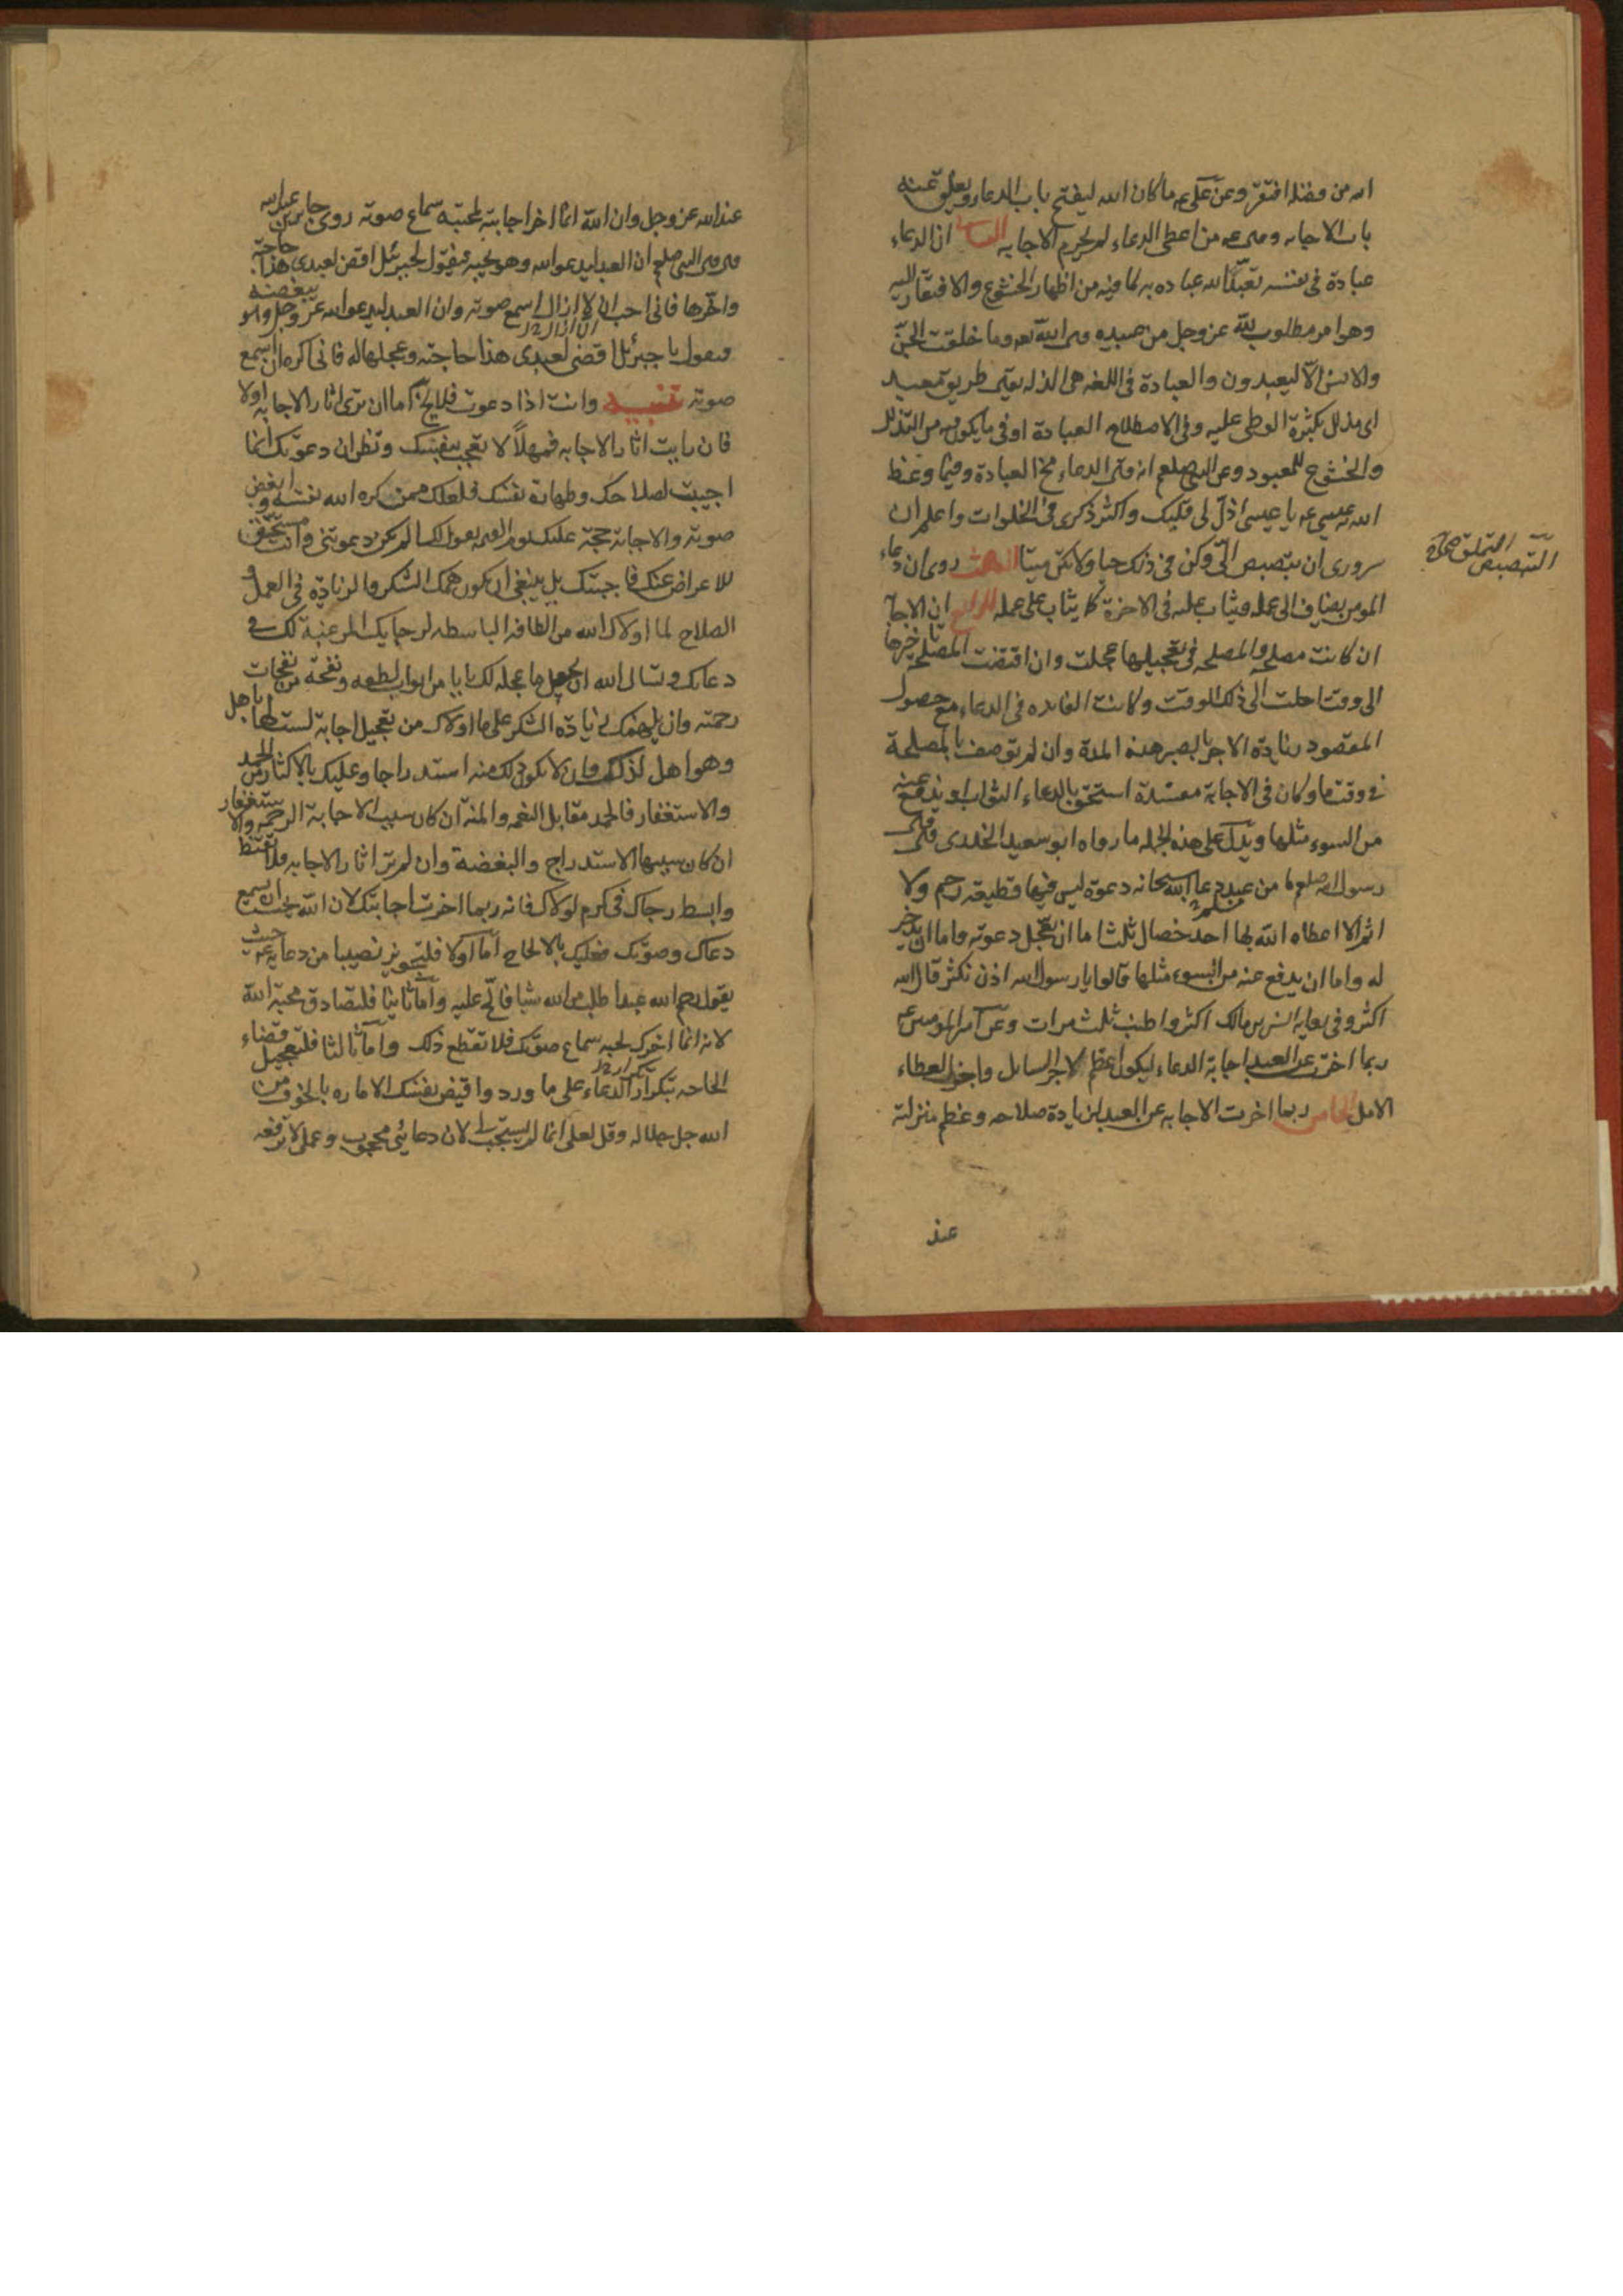 الله من فضله افتقر وعن علي ع ما كان الله ليفتح باب الدعاء ويغلق عنه
باب الاجابه وقال ع من اعطى الدعاء لم يحرم الاجابه الثانى ان الدعاء
عبادة فى نفسه تعبد الله عباده به لما فيه من اظهار الخشوع والافتقار اليه
وهو امر مطلوب لله عز وجل من عبيده قال الله تعه وما خلقت الجن
والانس الا ليعبدون والعبادة فى اللغه هى الذله يقال طريق معبد
اى مذلل بكثرة الوطى عليه وفى الاصطلاح العبادة اوفى ما يكون من التذلل
والخشوع للمعبود وعن النبي صلعم انه قال الدعاء مخ العبادة وفيما وعظ
الله به عيسى ع يا عيسى اذل لى قلبك واكثر ذكرى فى الخلوات واعلم ان
سرورى ان تبصبص الىّ وكن فى ذلك حيا ولا تكن ميتا الثالث روى ان دعاء
المومن يضاف الى عمله ويثاب عليه فى الاخرة كما يثاب على عمله الرابع ان الاجابة
ان كانت مصلحة والمصلحه فى تعجيلها عجلت وان اقتضت المصلحه تاخيرها
الى وقت اجلت الى ذلك الوقت وكانت الفايده فى الدعاء مع حصول
المقصود زيادة الاجر بالصبر هذه المدة وان لم توصف بالمصلحة
فى وقت ما وكان فى الاجابة مفسدة استحق بالدعاء الثواب او يدفع عنه
من السوء مثلها ويدل على هذه الجمله ما رواه ابو سعيد الخدرى قال قال
رسول الله صلعم ما من عبد مسلم دعا الله سبحانه دعوة ليس فيها قطيعه رحم ولا
اثم الا اعطاه الله بها احد خصال ثلث اما ان يعجل دعوته واما ان يدخر
له واما ان يدفع عنه من السوء مثلها قالوا يا رسول الله اذن نكثر قال الله
اكثر وفى روايه انس بن مالك اكثر واطيب ثلث مرات وعن امير المومنين ع
ربما اخرت عن العبد اجابة الدعاء ليكون اعظم لاجر السايل واجزل لعطاء
الامل الخامس ربما اخرت الاجابه عن العبد لزيادة صلاحه وعظم منزلته
عند
التبصبص التملق صحاح
عند الله عز وجل وان الله انما اخر اجابته لمحبته سماع صوته روى جابر بن عبد الله
قال قال النبي صلعم ان العبد ليدعو الله وهو يحبه فيقول لجبرئل اقض لعبدى هذا حاجته
واخرها فانى احب ان لا ازال اسمع صوته وان العبد ليدعو الله عز وجل وهو يبغضه
فيقول يا جبرئل اقض لعبدى هذا حاجته وعجلها له فانى اكره ان اسمع
صوته تنبيه وانت اذا دعوت فلا يخ اما ان ترى اثار الاجابه اولا
فان رايت اثار الاجابه فمهلا لا تعجب بنفسك وتظن ان دعوتك انما
اجيبت لصلاحك وطهارة نفسك فلعلك ممن كره الله نفسه وابغض
صوته والاجابة حجة عليك يوم القيمه يقول لك الم تكن دعوتنى وانت مستحق
للاعراض عنك فاجبتك بل ينبغى ان يكون همك الشكر والزيادة فى العمل
الصلاح لما اولاك الله من الطافه الباسطه لرجايك المرغبة لك فى
دعائك وتسال الله ان يجعل ما عجله لك بابا من ابواب لطفه ونفحة من نفحات
رحمته وان يلهمك زيادة الشكر على ما اولاك من تعجيل اجابة لست لها باهل
وهو اهل لذلك وان لا يكون ذلك منه استدراجا وعليك بالاكثار من الحمد
والاستغفار فالحمد مقابل النعمه والمنه ان كان سبب الاجابة الرحمه والاستغفار
ان كان سببها الاستدراج والبغضة وان لم تر اثار الاجابه فلا تقنط
وابسط رجاك فى كرم مولاك فانه ربما اخرت اجابتك لان الله يحب ان يسمع
دعاك وصوتك فعليك بالالحاح اما اولا فلتحوز نصيبا من دعايه ع حيث
يقول رحم الله عبدا طلب من الله شيا فالح عليه واما ثانيا فلتصادق محبة الله
لانه انما اخرك لحبه سماع صوتك فلا تقطع ذلك واما ثالثا فلتعجيل قضاء
الحاجه بتكرار الدعاء على ما ورد واقبض نفسك الاماره بالخوف من
الله جل جلاله وقل لعلى انما لم يستجب لان دعائى محجوب وعملى لا ترفعه